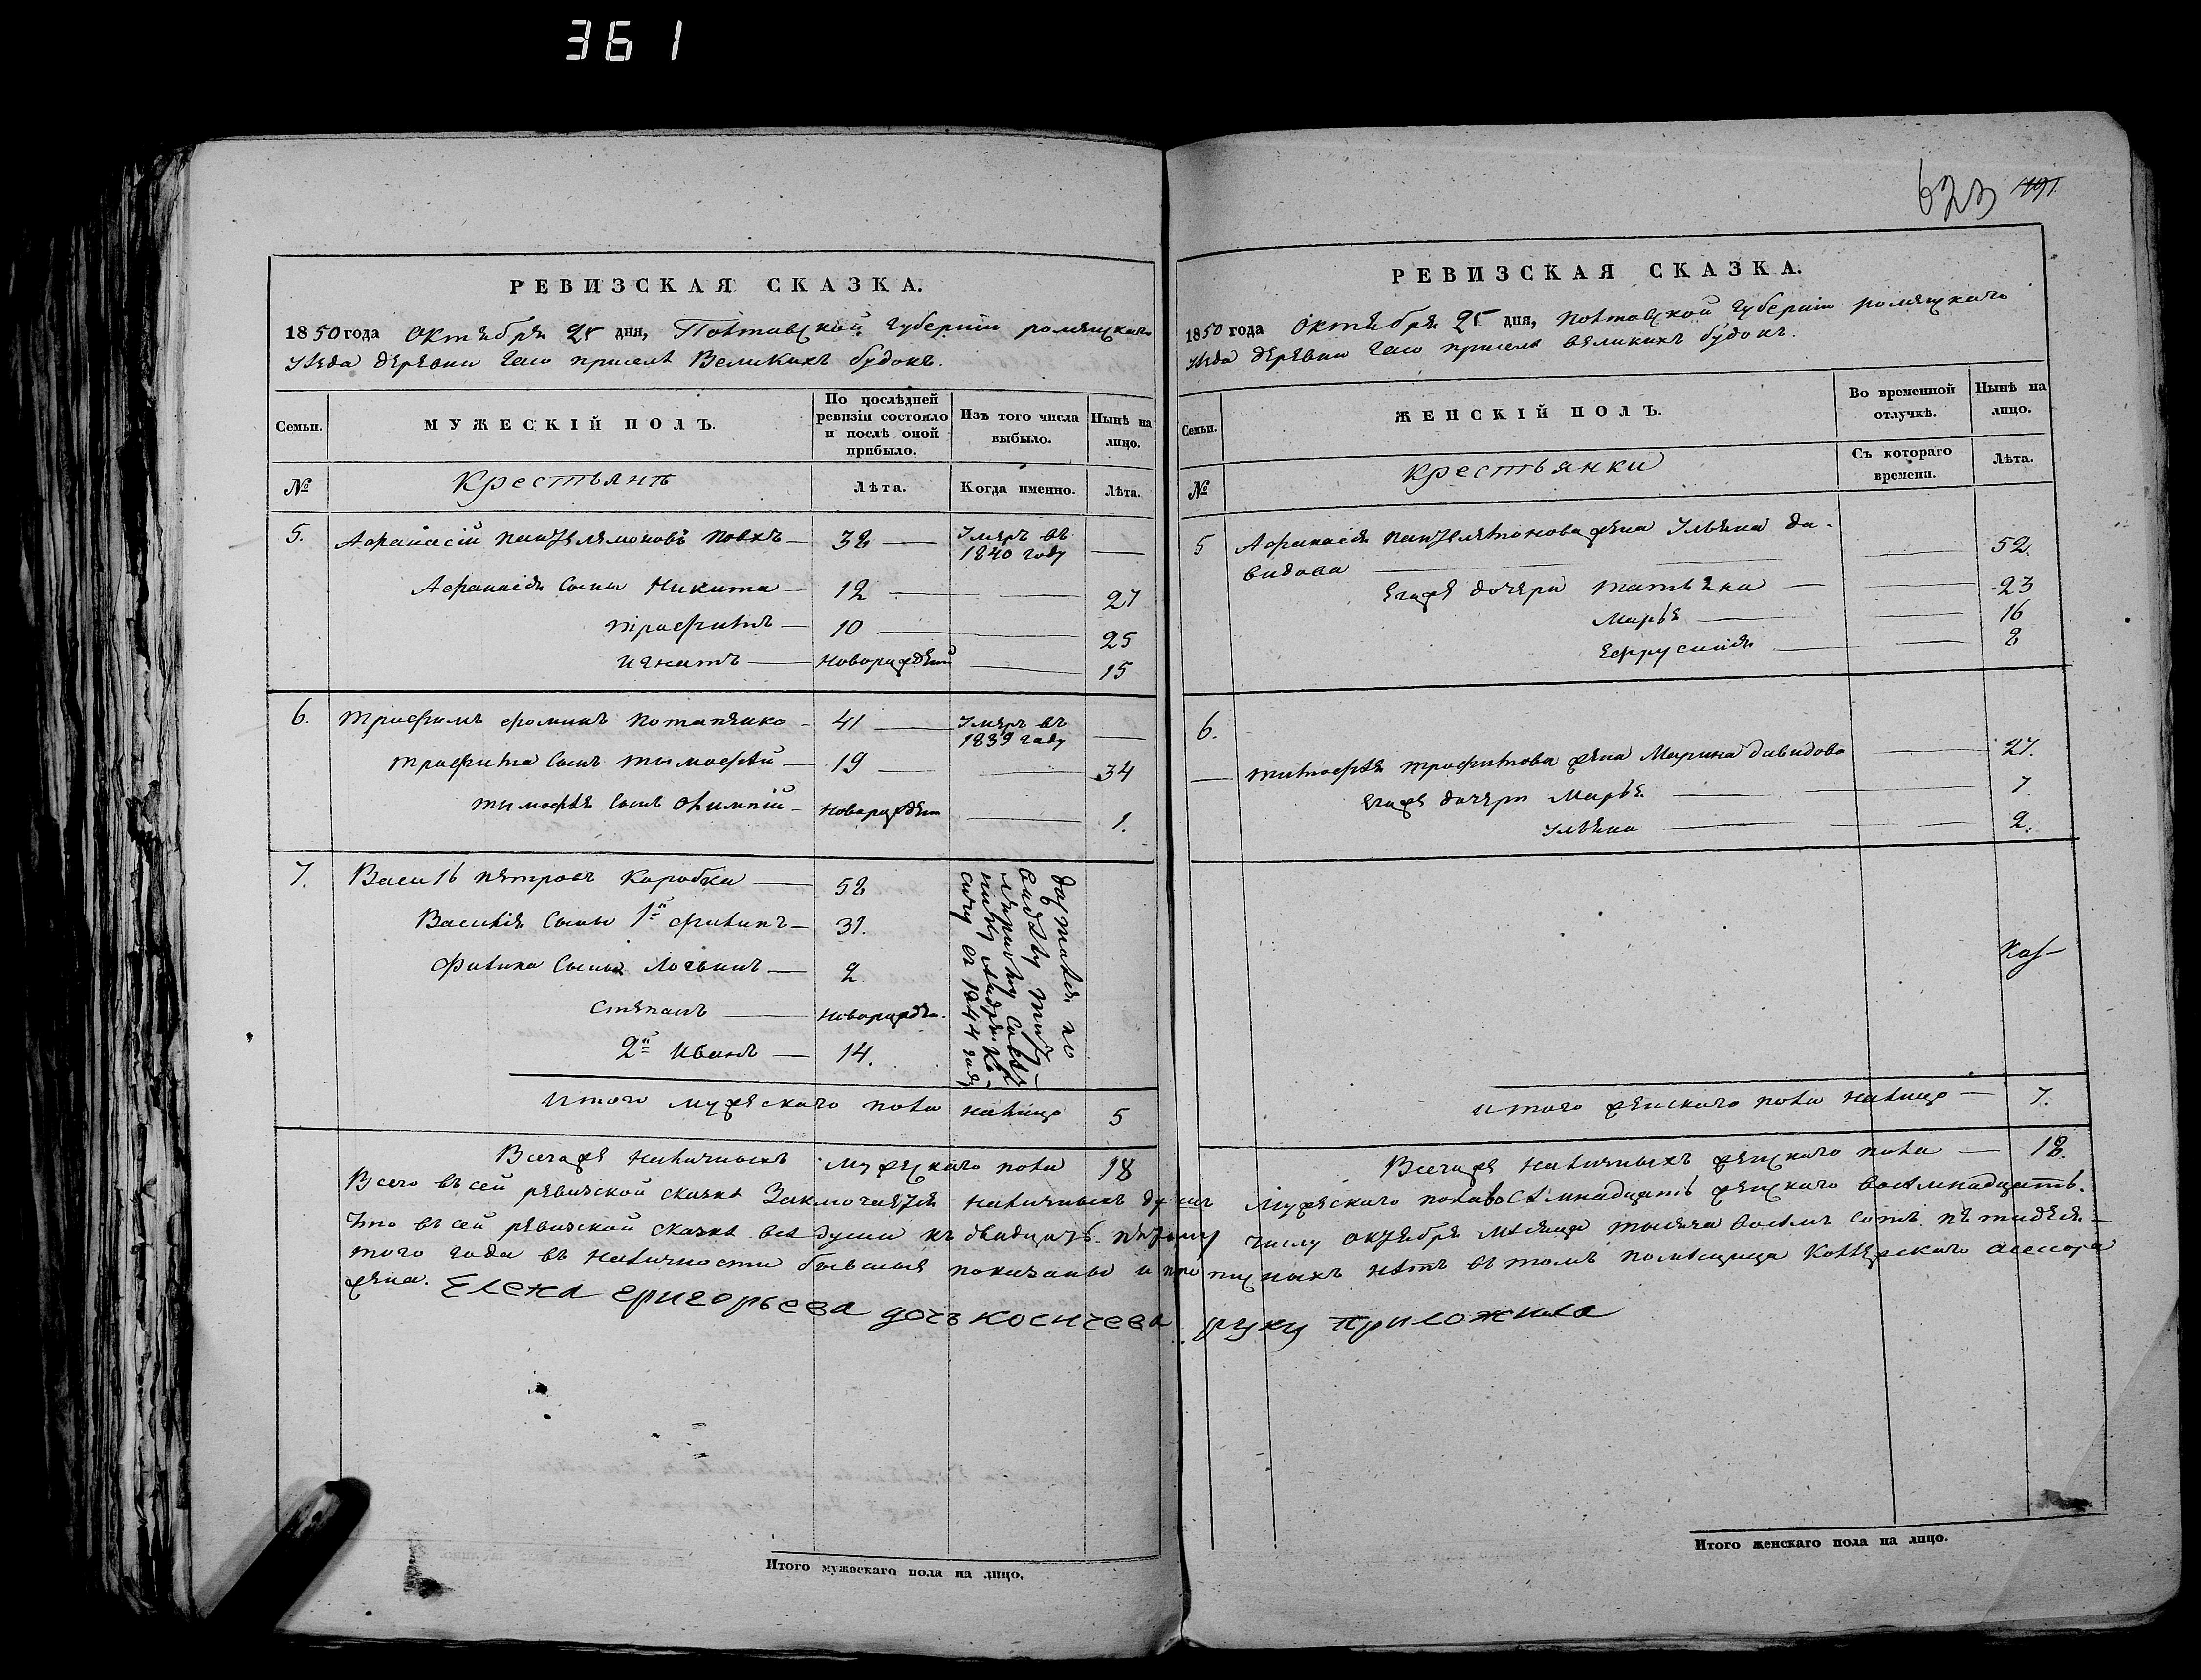 361
623 791
РЕВИЗСКАЯ СКАЗКА.
1850 года Октября 25 дня, Полтавской губерніи роменскаго
уезда деревни приселѣ Великихъ будокъ.
Семьи.
МУЖЕСКІЙ ПОЛЪ.
По послѣдней ревизіи состояло и послѣ оной прибыло.
Изъ того числа выбыло.
Нынѣ на лицо.
№
Крестьянъ
Лѣта.
Когда именно.
Лѣта.
5. Афанасій Пантелемоновъ 38 Умеръ въ 1840 году
Афанасія сыны Никита 12 27
Трофимъ 10 25
Игнатъ новорожден 15
6. Трофимъ Фоминъ Потапенко 41 Умеръ въ 1839 году
Трофима сынъ Тимофѣй 19 34
Тимофѣя сынъ новорожден 1.
7. Василь Петровъ Коробка 58
Василія сыны 1й Филипъ 31.
Филипа сыны Логвинъ 2
Степанъ новорожден.
2й Иванъ 14.
въ 1844 году
Итого мужескаго пола налицо 5
Всегоже наличныхъ мужескаго пола 18
РЕВИЗСКАЯ СКАЗКА.
1850 года Октября 25 дня, Полтавской губерніи роменскаго
уезда деревни приселѣ великихъ будокъ.
Семьи.
ЖЕНСКІЙ ПОЛЪ.
Во временной отлучкѣ.
Нынѣ на лицо.
№
Крестьянки
Съ котораго времени.
Лѣта.
5 Афанасія Пантелемонова жена Ульяна Да-
видова 52.
Егоже дочери Татьяна 23
Марья 16
Ефрусинія 8
6.
Тимофѣя Трофимова жена Марина Давидова 27.
Егоже дочери Марья 7
Ульяна 2.
Итого женскаго пола налицо 7.
Всегоже наличныхъ женскаго пола 18.
Всего въ сей ревизской сказкѣ заключается наличныхъ душъ мужескаго пола восемнадцать женскаго восемнадцать.
Что въ сей ревизской сказкѣ всѣ души къ двадцать пятому числу октября мѣсяца тысяча восемь сотъ пятидеся-
того года въ наличности бывшія показаны и прописныхъ нѣтъ въ томъ помѣщица асессора
жена. Елена григорьева дочь косичева руку приложила
Итого мужескаго пола на лицо.
Итого женскаго пола на лицо.